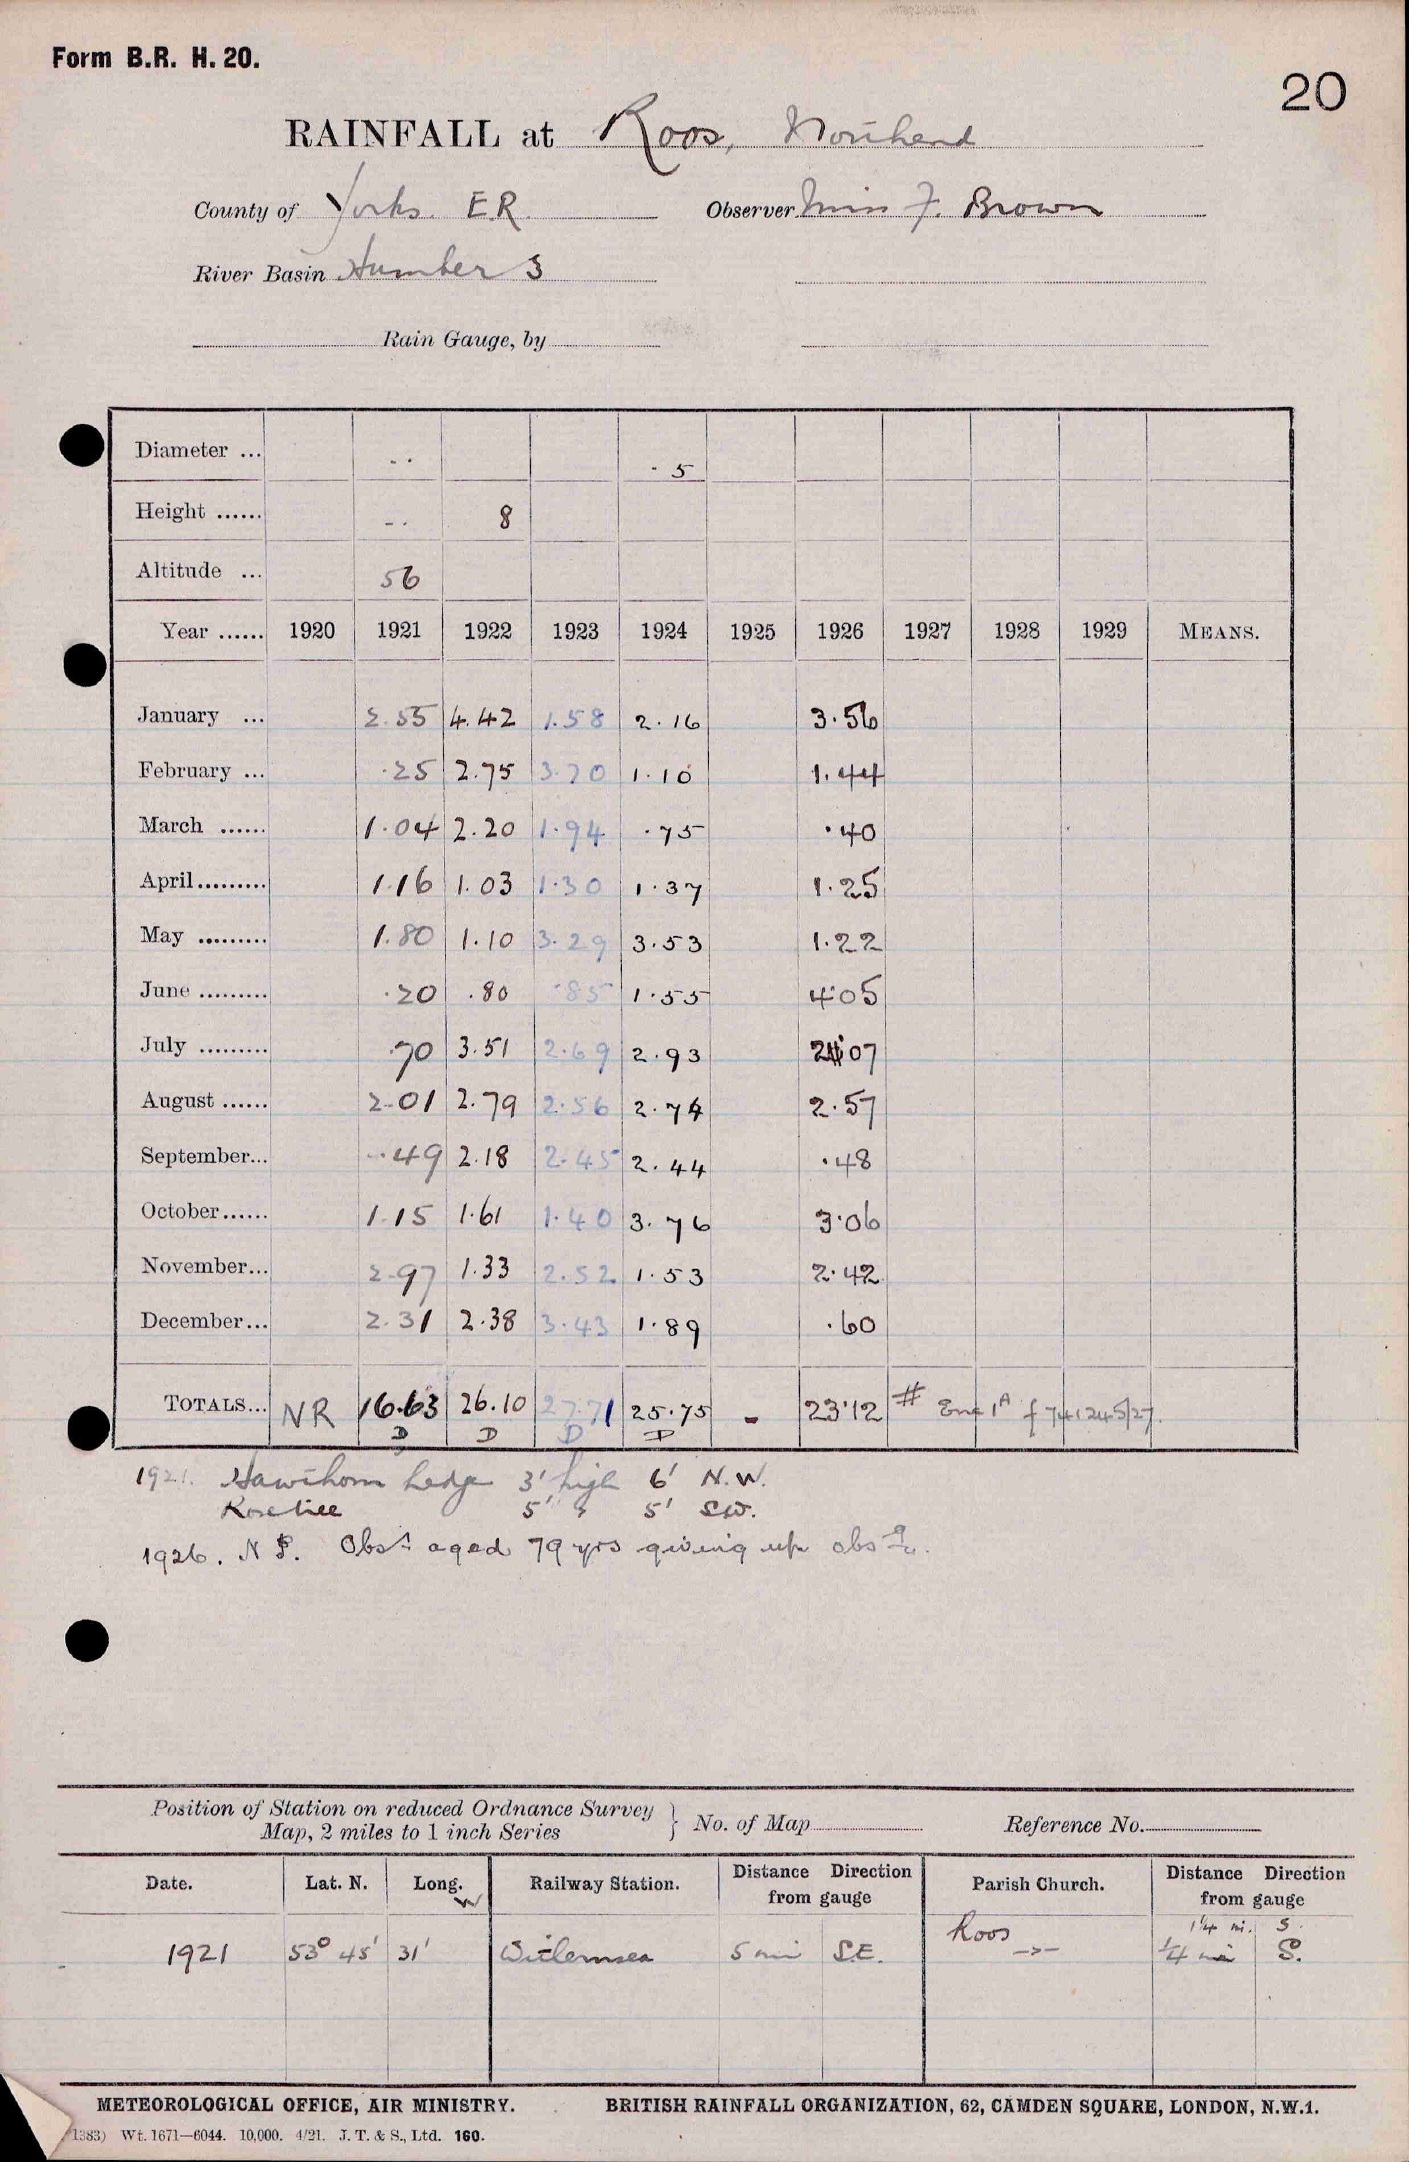 Form B.R. H. 20.
20
RAINFALL at Roos, Northend
County of Yorks. E.R. Observer Miss F. Brown
River Basin Humber 3
Rain Gauge, by
Diameter ... - . . 5
Height ...... - . 8
Altitude ... 56
Year ...... 1920 1921 1922 1923 1924 1925 1926 1927 1928 1929 MEANS.
January ... 2.55 4.42 1.58 2.16 3.56
February ... .25 2.75 3.70 1.10 1.44
March ...... 1.04 2.20 1.94 .75 .40
April......... 1.16 1.03 1.30 1.37 1.25
May ......... 1.80 1.10 3.29 3.53 1.22
June ......... .20 .80 .85 1.55 4.05
July ......... .70 3.51 2.69 2.93 2.07
August ...... 2.01 2.79 2.56 2.74 2.57
September... .49 2.18 2.45 2.44 .48
October...... 1.15 1.61 1.40 3.76 3.06
November... 2.97 1.33 2.52 1.53 2.42
December... 2.31 2.38 3.43 1.89 .60
TOTALS... NR 16.63 26.10 27.71 25.75 - 23.12 # Enc 1A f 741245/27.
D D D D
1921. Hawthorn hedge 3' high 6' N.W.
Rosetree 5' " 5' SW.
1926. N P. Obsr aged 79 yrs giving up obsn.
Position of Station on reduced Ordnance Survey
Map, 2 miles to 1 inch Series } No. of Map Reference No.
Date. Lat. N. Long. W Railway Station. Distance Direction from gauge Parish Church. Distance Direction from gauge
Roos 1¼ mi. S.
1921 53° 45' 31' Withernsea 5 mi S.E. ->- ¼ mi S.
METEOROLOGICAL OFFICE, AIR MINISTRY. BRITISH RAINFALL ORGANIZATION, 62, CAMDEN SQUARE, LONDON, N.W.1.
1383) Wt. 1671—6044. 10,000. 4/21. J. T. & S., Ltd. 160.